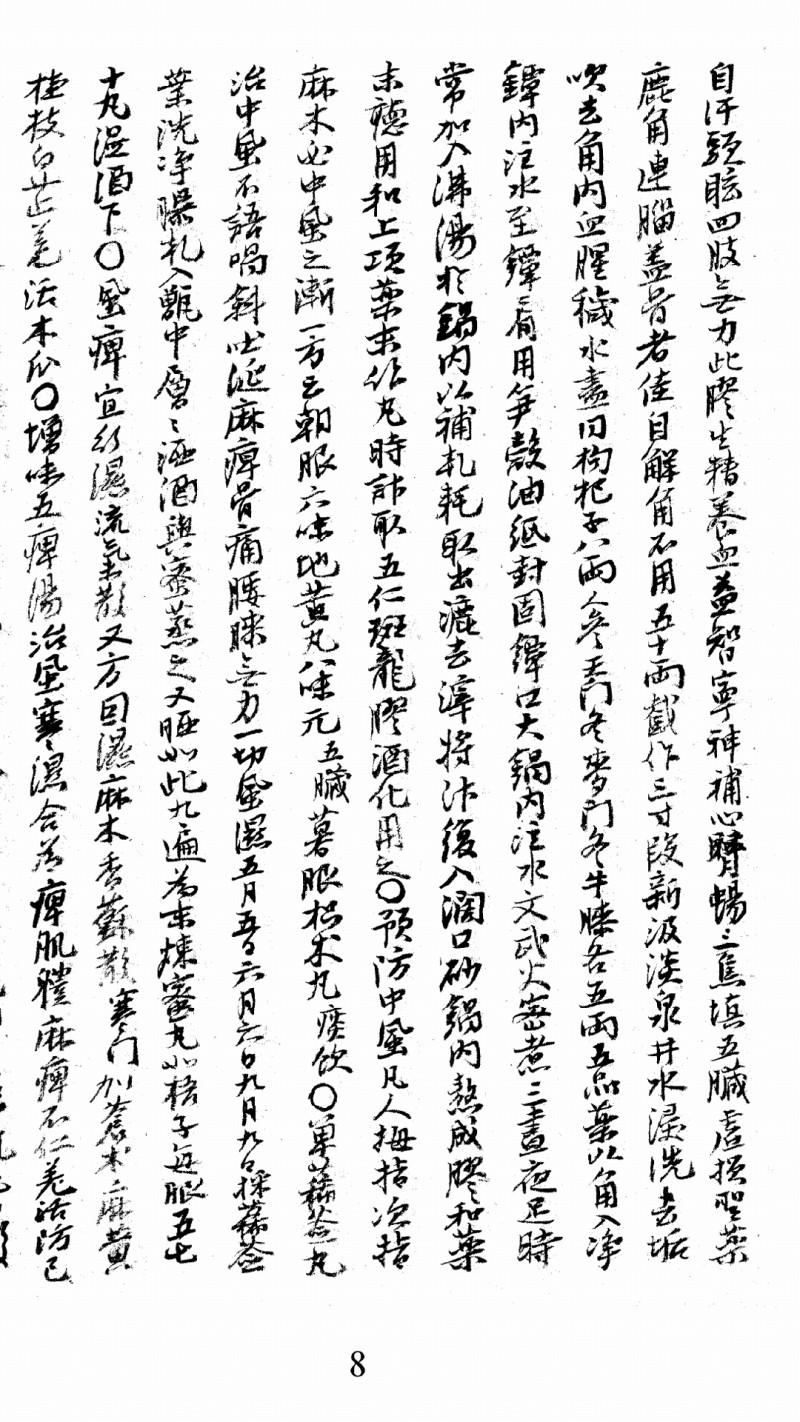 自汗頭眩四肢無力此膠生精養血益智寧神補心腎暢三焦填五臟虛損聖藥
鹿角連腦蓋骨者佳自解角不用五十兩截作三寸段新汲淡泉井水浸洗去垢
吹去角內血腥穢水盡同枸杞子八兩人參天門冬麥門冬牛膝各五兩五品藥以角入淨
罈內注水至罈肩用笋殼油紙封固罈口大鍋內注水文武火密煮三晝夜足時
常加入沸湯於鍋內以補乾耗取出漉去滓將汁復入濶口砂鍋內熬成膠和藥
末聽用和上項藥末作丸時詐取五仁斑龍膠酒化用之〇預防中風凡人拇指次指
麻木必中風之漸一方云朝服六味地黃丸八味元五臟暮服枳朮丸痰飲〇單豨薟丸
治中風不語喎斜吐涎麻痺骨痛腰膝無力一切風濕五月五日六月六日九月九日採豨薟
葉洗淨曝乾入甑中層々洒酒與蜜蒸之又晒如此九遍為末煉蜜丸如梧子每服五七
十丸溫酒下〇風痺宜行濕流氣散又方因濕麻木香蘇散寒門加蒼朮麻黃
桂枝白芷羌活木瓜〇增味五痺湯治風寒濕合為痺肌體麻痺不仁羌活防己
8